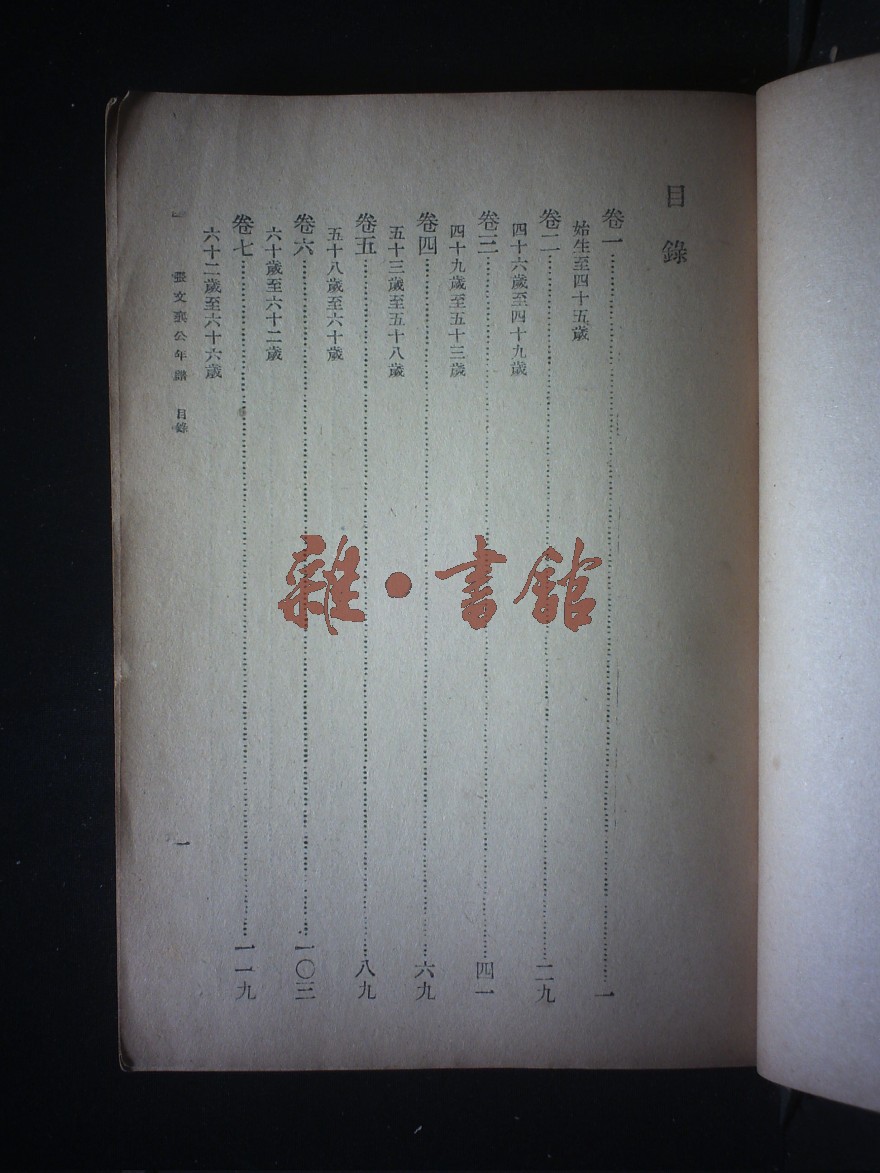 目錄
卷一……一
始生至四十五歲
卷二……二九
四十六歲至四十九歲
卷三……四一
四十九歲至五十三歲
卷四……六九
五十三歲至五十八歲
卷五……八九
五十八歲至六十歲
卷六……一〇三
六十歲至六十二歲
卷七……一一九
六十二歲至六十六歲
張文襄公年譜 目錄 一
雜·書館